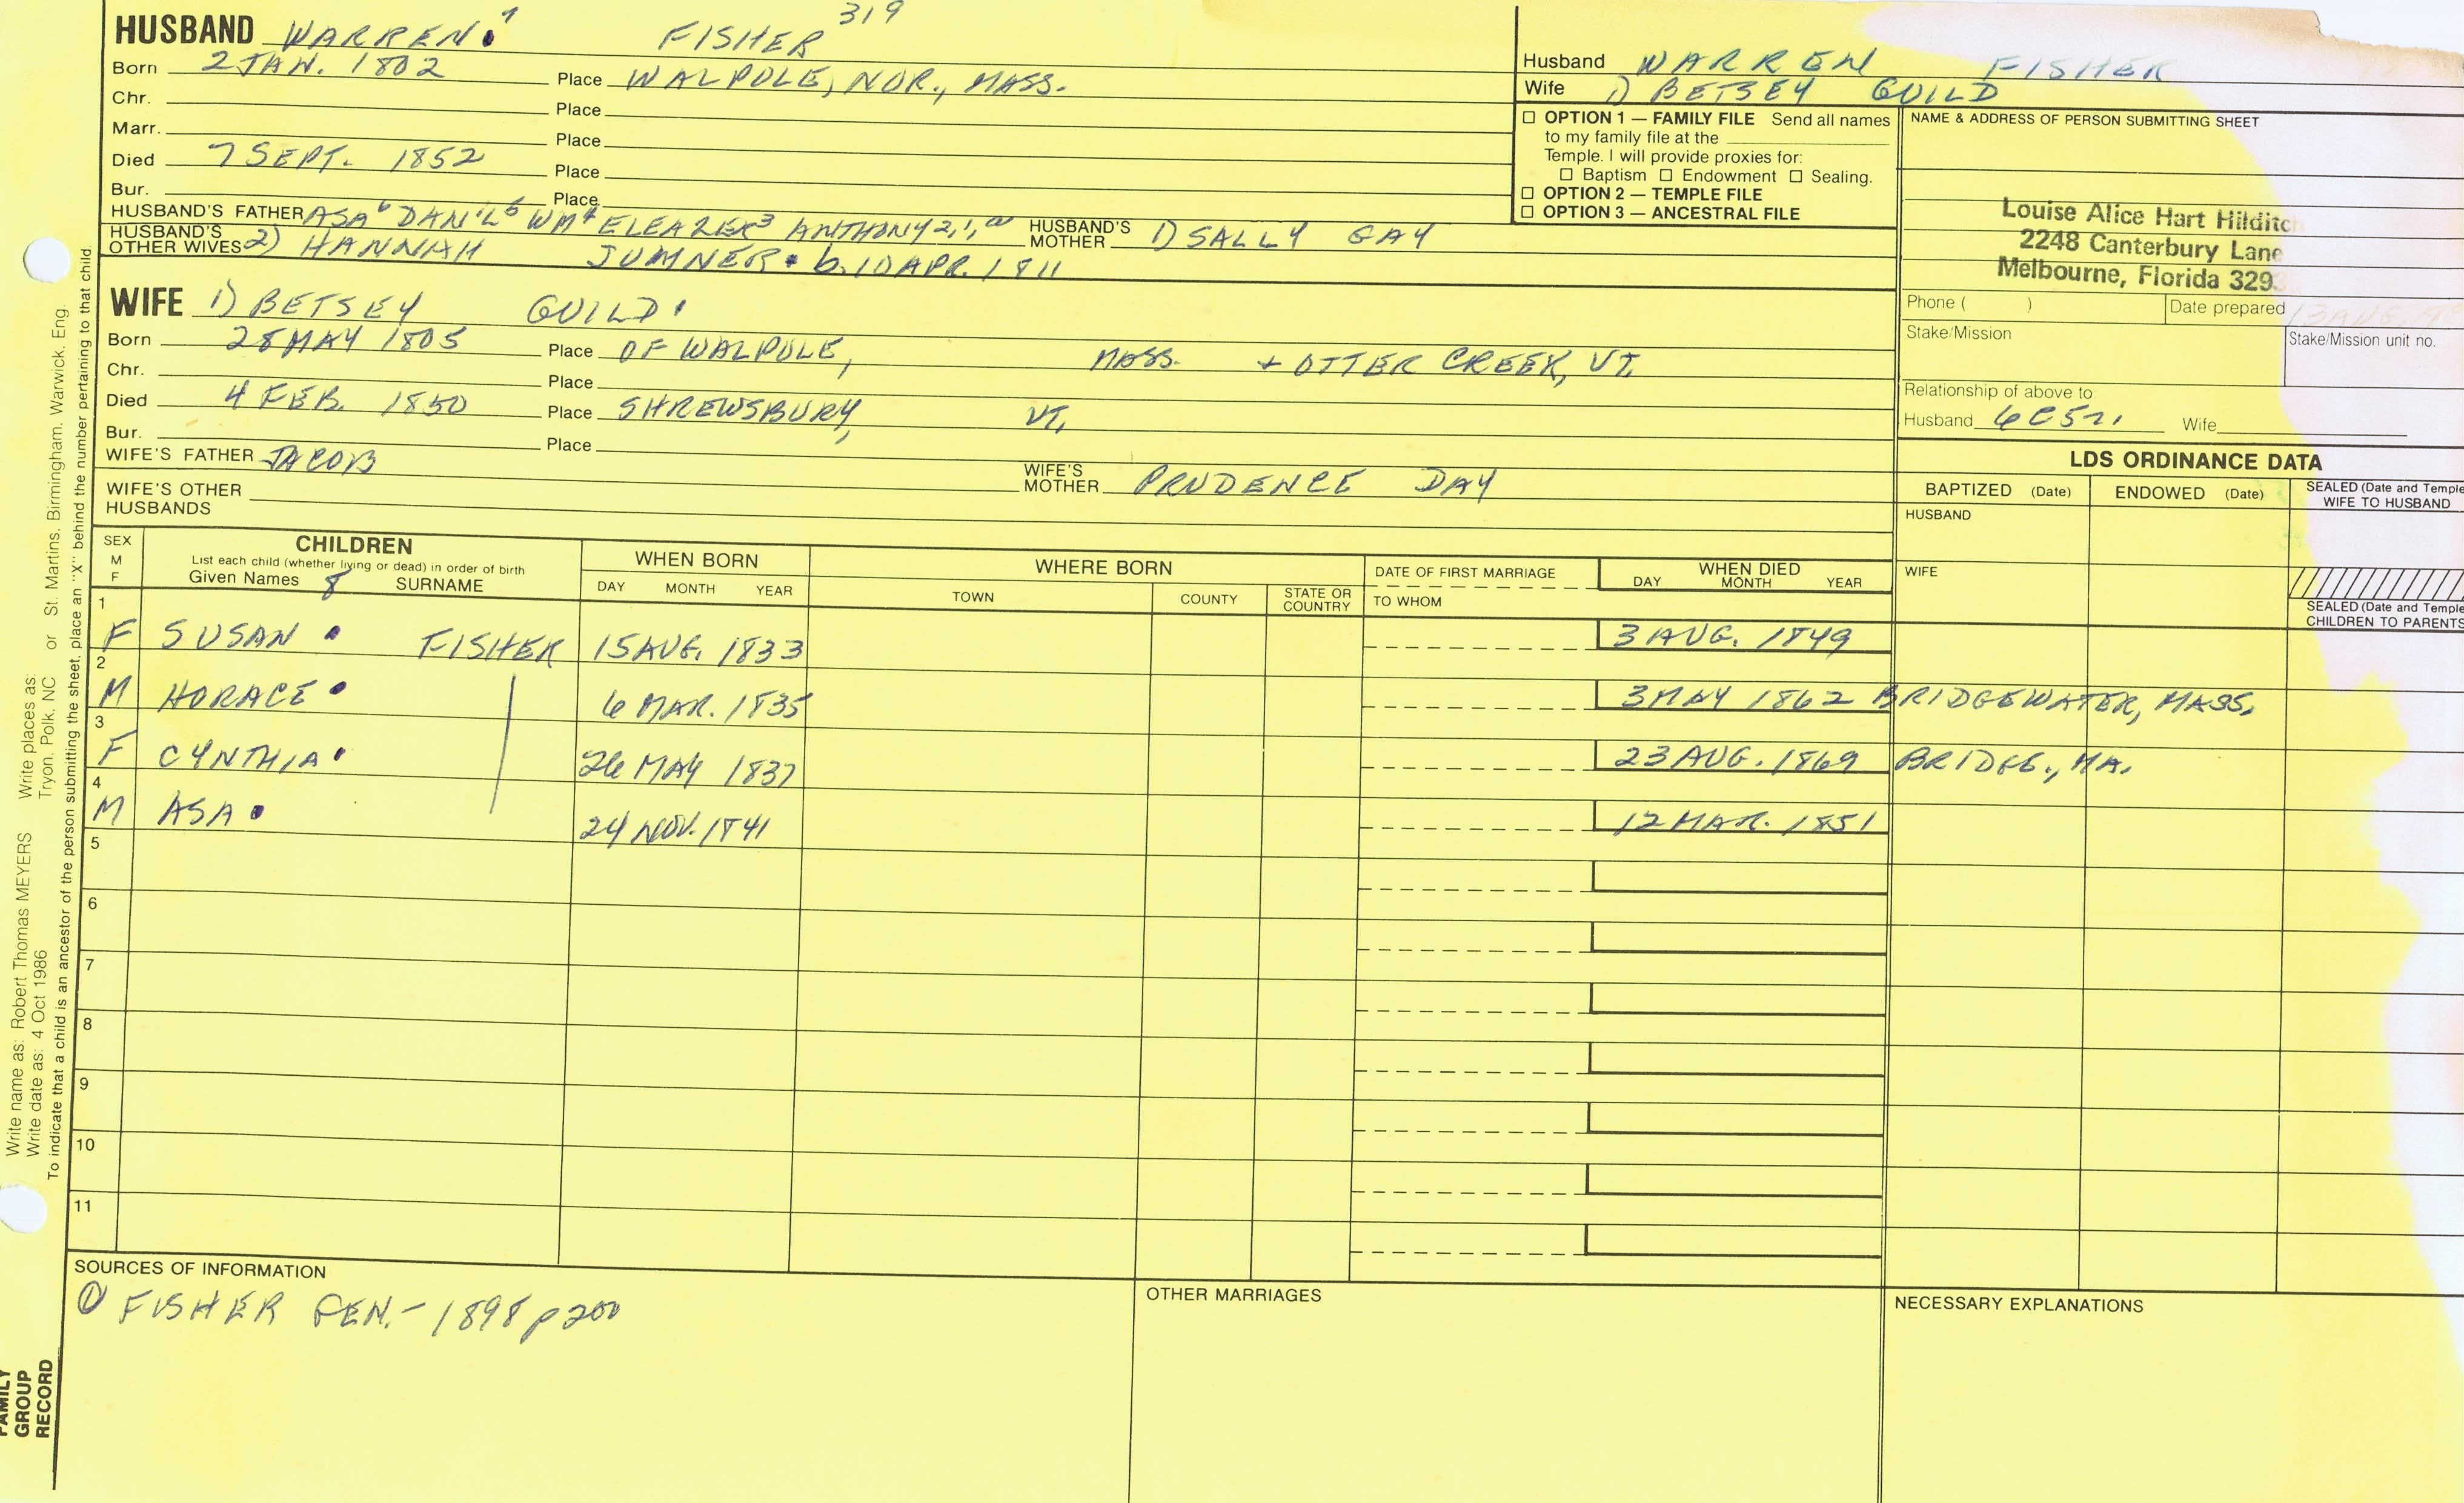 319
HUSBAND WARREN 7 FISHER
Born 2 JAN. 1802 Place WALPOLE, NOR., MASS.
Chr. Place
Marr. Place
Died 7 SEPT. 1852 Place
Bur. Place
HUSBAND'S FATHER ASA 6 DAN'L 5 WM 4 ELEAZER 3 ANTHONY 2,1, HUSBAND'S MOTHER 1) SALLY GAY
HUSBAND'S OTHER WIVES 2) HANNAH SUMNER b. 10 APR. 1811
WIFE 1) BETSEY GUILD
Born 28 MAY 1805 Place OF WALPOLE, MASS. + OTTER CREEK, VT.
Chr. Place
Died 4 FEB. 1850 Place SHREWSBURY, VT.
Bur. Place
WIFE'S FATHER JACOB WIFE'S MOTHER PRUDENCE DAY
WIFE'S OTHER HUSBANDS
Husband WARREN FISHER
Wife 1) BETSEY GUILD
☐ OPTION 1 — FAMILY FILE Send all names
to my family file at the
Temple. I will provide proxies for:
☐ Baptism ☐ Endowment ☐ Sealing.
☐ OPTION 2 — TEMPLE FILE
☐ OPTION 3 — ANCESTRAL FILE
NAME & ADDRESS OF PERSON SUBMITTING SHEET
Louise Alice Hart Hilditc
2248 Canterbury Lane
Melbourne, Florida 329
Phone ( ) Date prepared
Stake/Mission Stake/Mission unit no.
Relationship of above to
Husband 6C5 Wife
LDS ORDINANCE DATA
BAPTIZED (Date) ENDOWED (Date) SEALED (Date and Temple
WIFE TO HUSBAND
HUSBAND
WIFE
SEALED (Date and Temple
CHILDREN TO PARENTS
SEX
M
F
CHILDREN
List each child (whether living or dead) in order of birth
Given Names 8 SURNAME
WHEN BORN
DAY MONTH YEAR
WHERE BORN
TOWN COUNTY STATE OR COUNTRY
DATE OF FIRST MARRIAGE
TO WHOM
WHEN DIED
DAY MONTH YEAR
1
F SUSAN FISHER 15 AUG. 1833 3 AUG. 1849
2
M HORACE 6 MAR. 1835 3 MAY 1862 BRIDGEWATER, MASS.
3
F CYNTHIA 26 MAY 1837 23 AUG. 1869 BRIDGE., MA.
4
M ASA 24 NOV. 1841 12 MAR. 1851
5
6
7
8
9
10
11
SOURCES OF INFORMATION
① FISHER GEN. - 1898 p 200
OTHER MARRIAGES
NECESSARY EXPLANATIONS
Write name as: Robert Thomas MEYERS Write places as: St. Martins, Birmingham, Warwick, Eng.
Write date as: 4 Oct 1986 Tryon, Polk, NC or
To indicate that a child is an ancestor of the person submitting the sheet, place an "X" behind the number pertaining to that child.
FAMILY
GROUP
RECORD